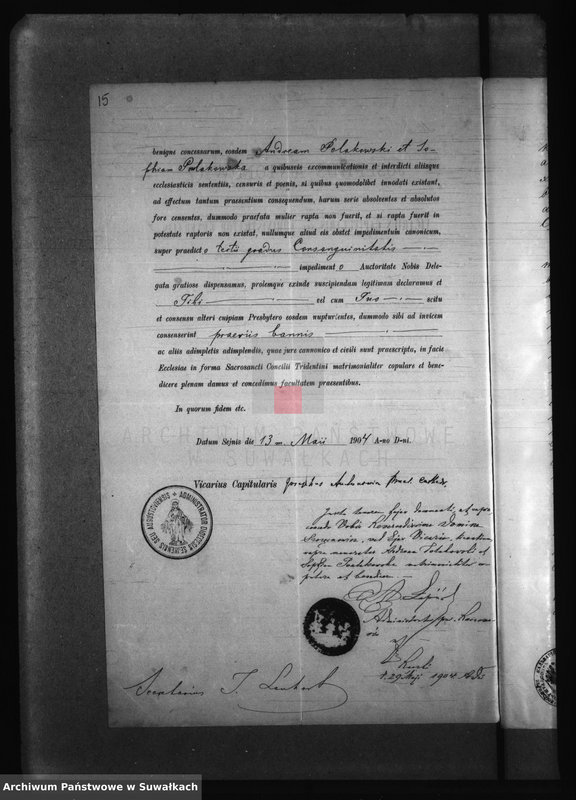 15
benigne concessarum, eosdem Andream Polakowski et So-
fhiam Polakowska a quibusvis excommunicationis et interdicti aliisque
ecclesiasticis sententiis, censuris et poenis, si quibus quomodolibet innodati existant,
ad effectum tantum praesentium consequendum, harum serie absolventes et absolutos
fore censentes, dummodo praefata mulier rapta non fuerit, et si rapta fuerit in
potestate raptoris non existat, nullumque aliud eis obstet impedimentum canonicum,
super praedicto tertii gradus Consanguinitatis
impedimento Auctoritate Nobis Dele-
gata gratiose dispensamus, prolemque exinde suscipiendam legitimam declaramus et
Tibi vel cum Tuo scitu
et consensu alteri cuipiam Presbytero eosdem nupturientes, dummodo sibi ad invicem
consenserint praeviis bannis
ac aliis adimpletis adimplendis, quae jure cannonico et civili sunt praescripta, in facie
Ecclesias in forma Sacrosancti Concilii Tridentini matrimonialiter copulare et bene-
dicere plenam damus et concedimus facultatem praesentibus.
In quorum fidem etc.
ARCHIWUM PAŃSTWOWE
W SUWAŁKACH
Datum Sejnis die 13 Maii 1904 A-no D-ni.
Vicarius Capitularis Josephus Antonowicz
ADMINISTRATOR DIOECESIS SEJNENSIS SEU AUGUSTOVIENSIS
Juxta tenorem hujus documenti, et
Reverendissime Domine
vel Ejus Vicario
Andream Polakowski et
Sophiam Polakowska matrimonialiter
et
Administrator
29 Maji 1904
Secretarius J.
Archiwum Państwowe w Suwałkach